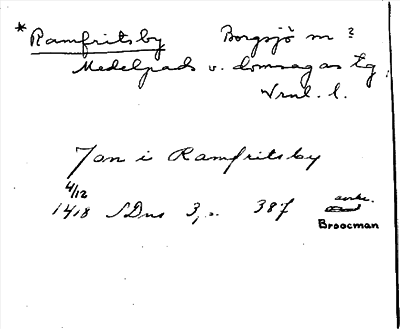 * Ramfritsby Borgsjö m ?
Medelpads v. domsagas tg
Vrnl. l.
Jon i Ramfritsby
4/12
1418 SDns 3, s. 387
Broocman